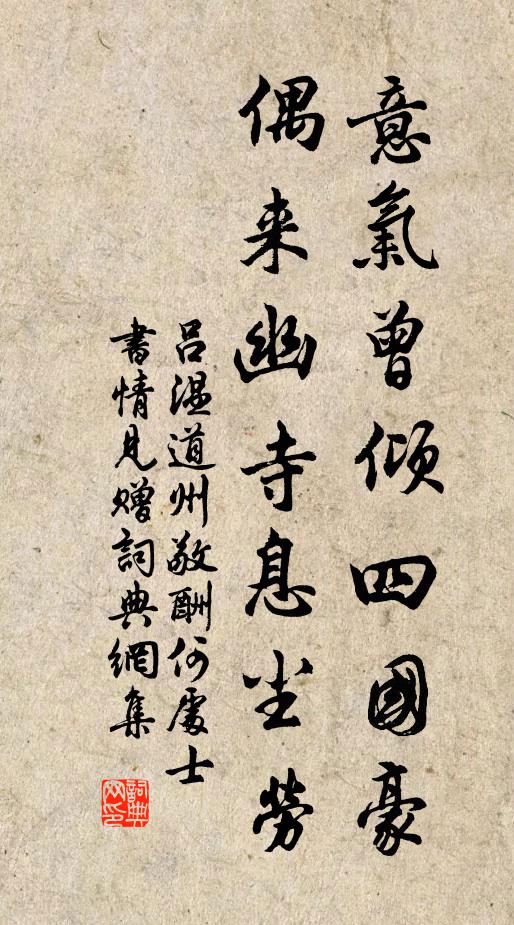 意氣曾傾四國豪
偶来幽寺息尘勞
呂温道州敬酬何處士
書情見贈詞典網集
詞典
网印